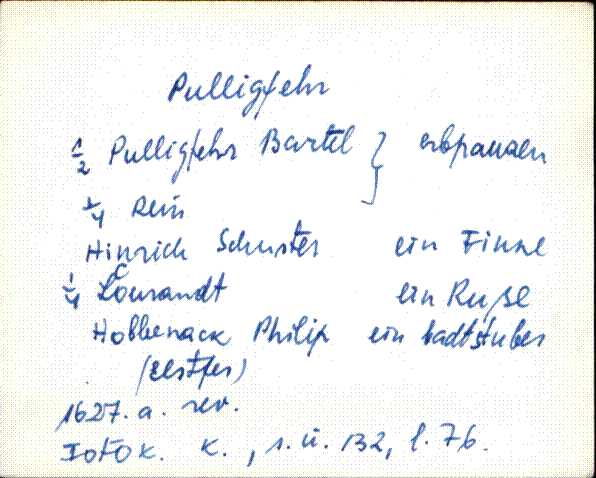 Pulligfehr
1/2 Pulligfehr Bartel } erbpauren
1/4 Rein
Hinrich Schuster ein Finne
1/4 Lourandt ein Ruße
Hobbenack Philip ein badtstuber
(Elstfer)
1627. a. rev.
Fotok. K., s. ü. 132, l. 76.